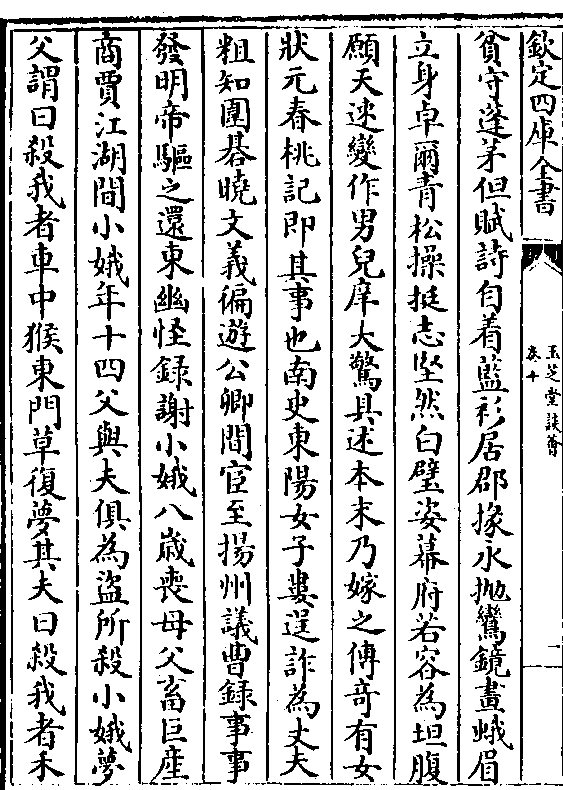 欽定四庫全書
玉芝堂談薈
卷十
一
貧守蓬茅但賦詩自着藍衫居郡掾永抛鸞鏡畫蛾眉
立身卓爾青松操挺志堅然白璧姿幕府若容為坦腹
願天速變作男兒庠大驚具述本末乃嫁之傳竒有女
狀元春桃記即其事也南史東陽女子婁逞詐為丈夫
粗知圍碁曉文義徧遊公卿間宦至揚州議曹錄事事
發明帝驅之還東幽怪錄謝小娥八歲喪母父畜巨産
商賈江湖間小娥年十四父與夫俱為盜所殺小娥夢
父謂曰殺我者車中猴東門草復夢其夫曰殺我者禾